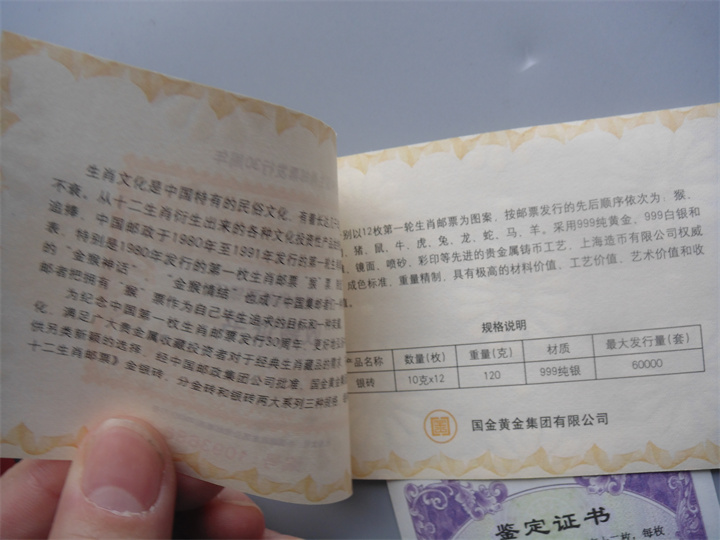 生肖文化是中国特有的民俗文化，有着长达
不衰。从十二生肖衍生出来的各种文化投资性产品
追捧。中国邮政于1980年至1991年发行的第一轮生肖
表，特别是1980年发行的第一枚生肖邮票“猴”票
的“金猴神话”。“金猴情结”也成了中国集邮者
邮者把拥有“猴”票作为自己毕生追求的目标和一种
为纪念中国第一枚生肖邮票发行30周年，更好地
化，满足广大贵金属收藏投资者对于经典生肖藏品的
供另类新颖的选择，经中国邮政集团公司批准，国金黄金
十二生肖邮票》金银砖，分金砖和银砖两大系列三种规格
别以12枚第一轮生肖邮票为图案，按邮票发行的先后顺序依次为：猴、
、猪、鼠、牛、虎、兔、龙、蛇、马、羊。采用999纯黄金、999白银和
、镜面，喷砂、彩印等先进的贵金属铸币工艺，上海造币有限公司权威
成色标准，重量精制，具有极高的材料价值、工艺价值、艺术价值和收
规格说明
产品名称 数量(枚) 重量(克) 材质 最大发行量(套)
银砖 10克x12 120 999纯银 60000
国金黄金集团有限公司
鉴定证书
十二枚，每枚